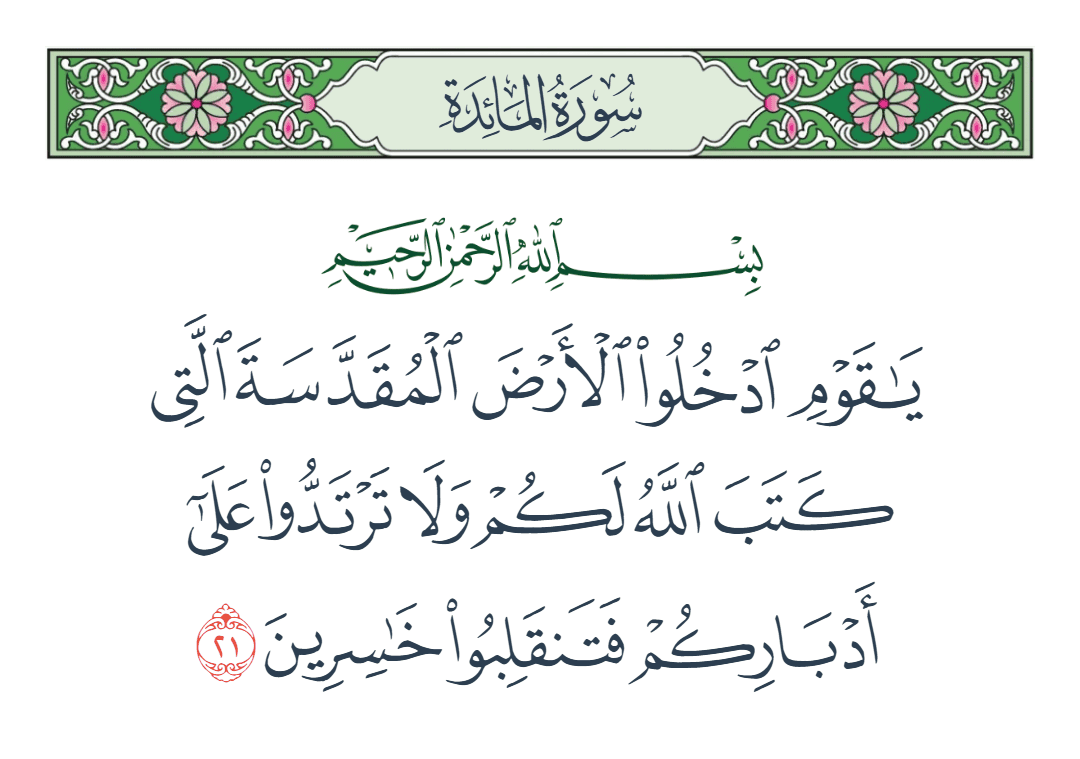 سُورَةُ المَائِدَةِ
بِسْمِ ٱللَّهِ ٱلرَّحْمَٰنِ ٱلرَّحِيمِ
يَـٰقَوْمِ ٱدْخُلُوا۟ ٱلْأَرْضَ ٱلْمُقَدَّسَةَ ٱلَّتِى
كَتَبَ ٱللَّهُ لَكُمْ وَلَا تَرْتَدُّوا۟ عَلَىٰٓ
أَدْبَارِكُمْ فَتَنقَلِبُوا۟ خَـٰسِرِينَ ٢١